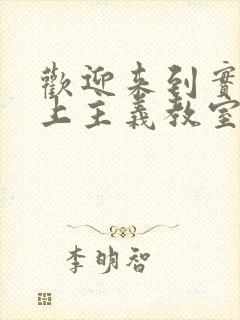 歡迎来到實
上主義教室
李明智